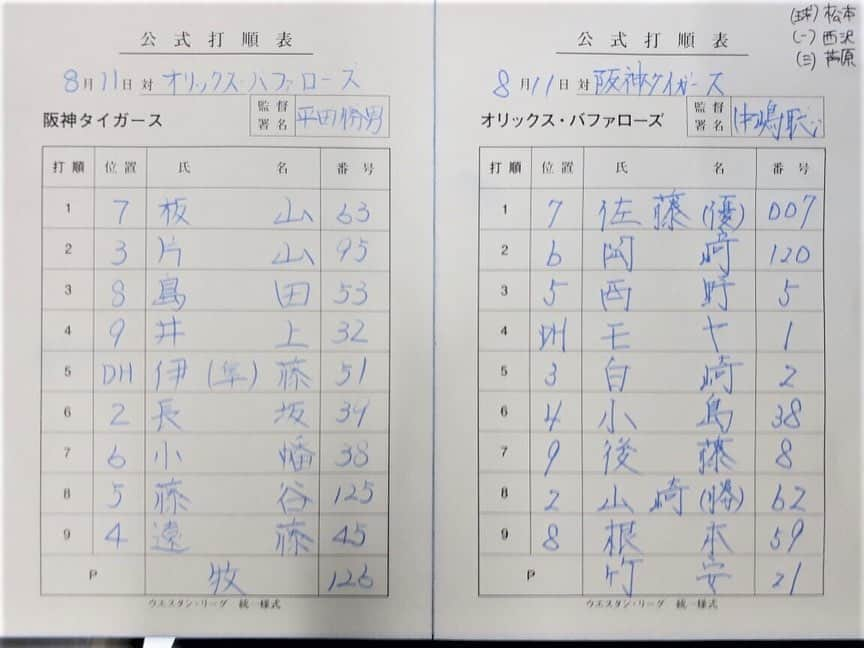 公式打順表
8月11日 対 オリックス・バファローズ
阪神タイガース 監督署名 平田勝男
打順 位置 氏名 番号
1 7 板山 63
2 3 片山 95
3 8 島田 53
4 9 井上 32
5 DH 伊(隼)藤 51
6 2 長坂 39
7 6 小幡 38
8 5 藤谷 125
9 4 遠藤 45
P 牧 126
ウエスタン・リーグ 統一様式
(球) 松本
(一) 西沢
(三) 芦原
公式打順表
8月11日 対 阪神タイガース
オリックス・バファローズ 監督署名 中嶋聡
打順 位置 氏名 番号
1 7 佐藤(優) 007
2 6 岡崎 120
3 5 西野 5
4 DH モヤ 1
5 3 白崎 2
6 4 小島 38
7 9 後藤 8
8 2 山崎(勝) 62
9 8 根本 59
P 竹安 21
ウエスタン・リーグ 統一様式